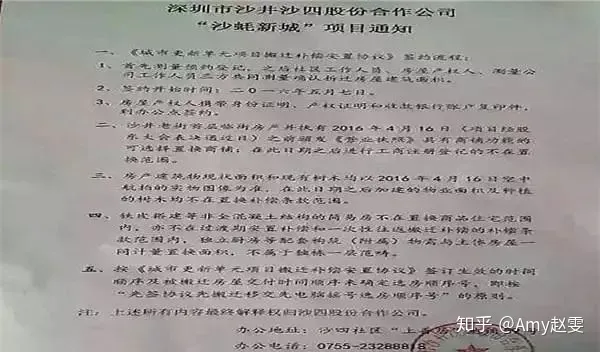 深圳市沙井沙四股份合作公司
“沙蚝新城”项目通知
一、《城市更新单元项目搬迁补偿安置协议》签约流程:
1、首先测量预约登记,之后社区工作人员、房屋产权人、测量公
司工作人员三方共同测量确认拆迁房屋建筑面积。
2、签约开始时间:二〇一六年五月七日。
3、房屋产权人携带身份证明、产权证明和收款银行账户复印件,
到办公点签约。
二、沙井老街首层临街房产并执有2016年4月16日(项目经股
东大会表决通过日)之前颁发《营业执照》具有商铺功能的
可选择置换商铺;在此日期之后进行工商注册登记的不在置
换范围。
三、房产建筑物现状面积和现有树木均以2016年4月16日空中
航拍的实物图像为准,在此日期之后加建的物业面积及种植
的树木均不在置换补偿条款范围。
四、铁皮搭建等非全混凝土结构的简易房不在置换商品住宅范围
内,亦不在过渡期安置补偿和一次性往返搬迁补偿的补偿条
款范围内,独立厨房等配套构筑(附属)物需与主体房屋一
同计量置换面积,不属于独栋一层范畴。
五、按《城市更新单元项目搬迁补偿安置协议》签订生效的时间
顺序及被搬迁房屋交付时间顺序来确定选房顺序号,即按
“先签协议先搬迁移交先电脑摇号选房顺序号”的原则。
注:上述所有内容最终解释权归沙四股份合作公司。
办公地址:沙四社区“上
办公电话:0755-23288818
知乎 @Amy赵雯